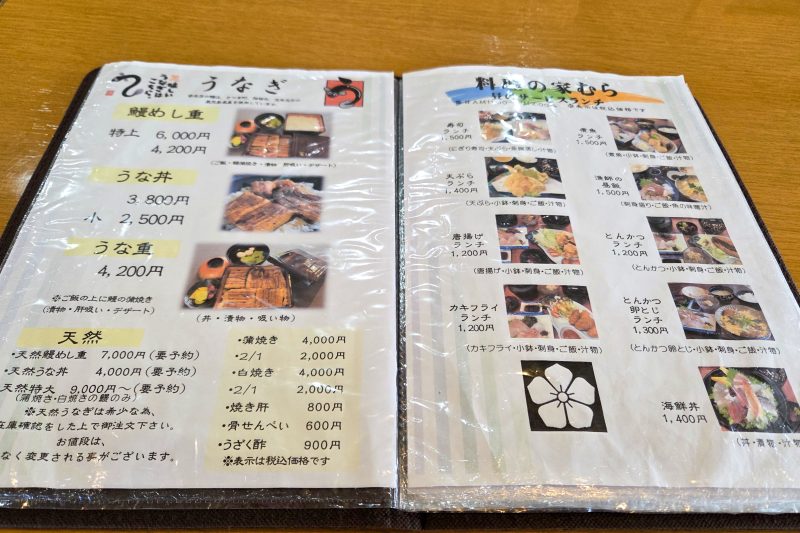 うなぎ
う
鰻めし重
特上 6,000円
4,200円
(ご飯・鰻蒲焼き・漬物 肝吸い・デザート)
うな丼
3,800円
小 2,500円
うな重
4,200円
※ご飯の上に鰻の蒲焼き
(漬物・肝吸い・デザート)
(丼・漬物・吸い物)
天然
・天然鰻めし重 7,000円(要予約)
・天然うな丼 4,000円(要予約)
天然特大 9,000円〜(要予約)
(蒲焼き・白焼きの鰻のみ)
※天然うなぎは希少な為、
在庫確認をした上で御注文下さい。
お値段は、
なく変更される事がございます。
・蒲焼き 4,000円
・2/1 2,000円
・白焼き 4,000円
・2/1 2,000円
・焼き肝 800円
・骨せんべい 600円
・うざく酢 900円
※表示は税込価格です
料理の家むら
寿司
ランチ
1,500円
(にぎり寿司・天ぷら・茶碗蒸し・汁物)
煮魚
ランチ
1,500円
(煮魚・小鉢・刺身・ご飯・汁物)
天ぷら
ランチ
1,400円
(天ぷら・小鉢・刺身・ご飯・汁物)
漁師の
昼飯
1,500円
(刺身盛り・ご飯・魚の味噌汁)
唐揚げ
ランチ
1,200円
(唐揚げ・小鉢・刺身・ご飯・汁物)
とんかつ
ランチ
1,200円
(とんかつ・小鉢・刺身・ご飯・汁物)
カキフライ
ランチ
1,200円
(カキフライ・小鉢・刺身・ご飯・汁物)
とんかつ
卵とじ
ランチ
1,300円
(とんかつ卵とじ・小鉢・刺身・ご飯・汁物)
海鮮丼
1,400円
(丼・漬物・汁物)